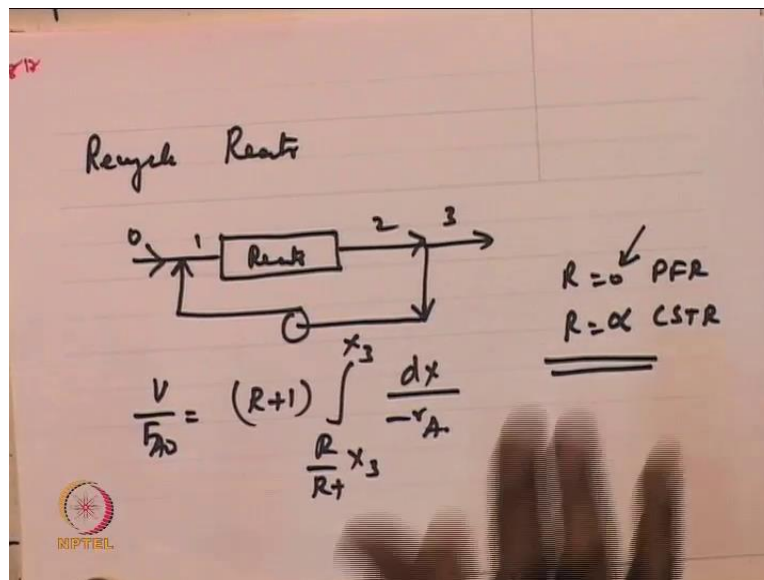 Recycle Reactr
0 1 Reactr 2 3
R = 0 PFR
R = ∝ CSTR
V/F_A0 = (R+1) ∫_{R/R+ X3}^{X3} dx/-r_A.
NPTEL